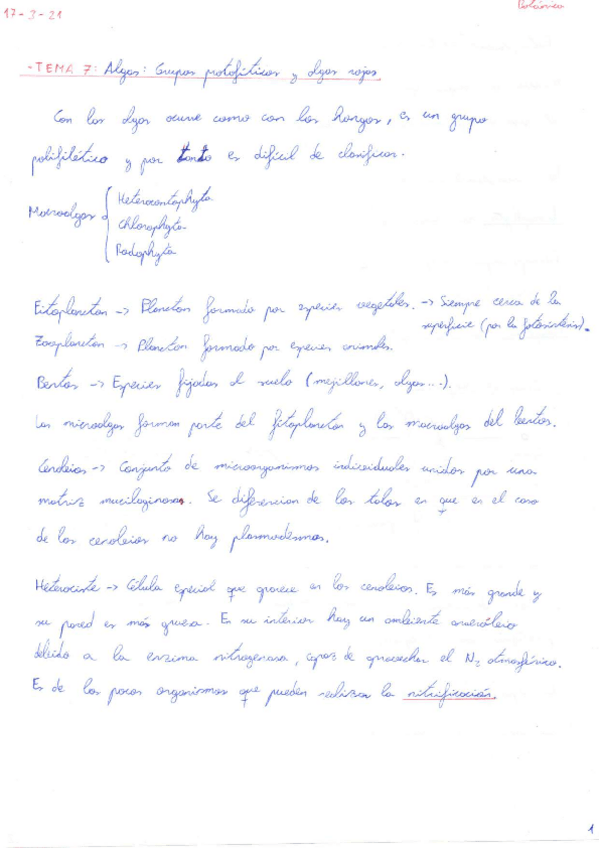 17-3-21
Botánica
- TEMA 7: Algas: Grupos protofíticos y algas rojas
Con las algas ocurre como con los hongos, es un grupo
polifilético y por tanto es difícil de clasificar.
Macroalgas
Heterocontophyta
Chlorophyta
Rodophyta
Fitoplancton -> Plancton formado por especies vegetales. -> Siempre cerca de la
superficie (por la fotosíntesis).
Zooplancton -> Plancton formado por especies animales.
Bentos -> Especies fijadas al suelo (mejillones, algas...).
Las microalgas forman parte del fitoplancton y las macroalgas del bentos.
Cenobios -> Conjunto de microorganismos individuales unidos por una
matriz mucilaginosa. Se diferencian de los talos en que en el caso
de los cenobios no hay plasmodesmos.
Heterociste -> Célula especial que aparece en los cenobios. Es más grande y
su pared es más gruesa. En su interior hay un ambiente anaerobio
debido a la enzima nitrogenasa, capaz de aprovechar el N₂ atmosférico.
Es de los pocos organismos que pueden realizar la nitrificación.
1